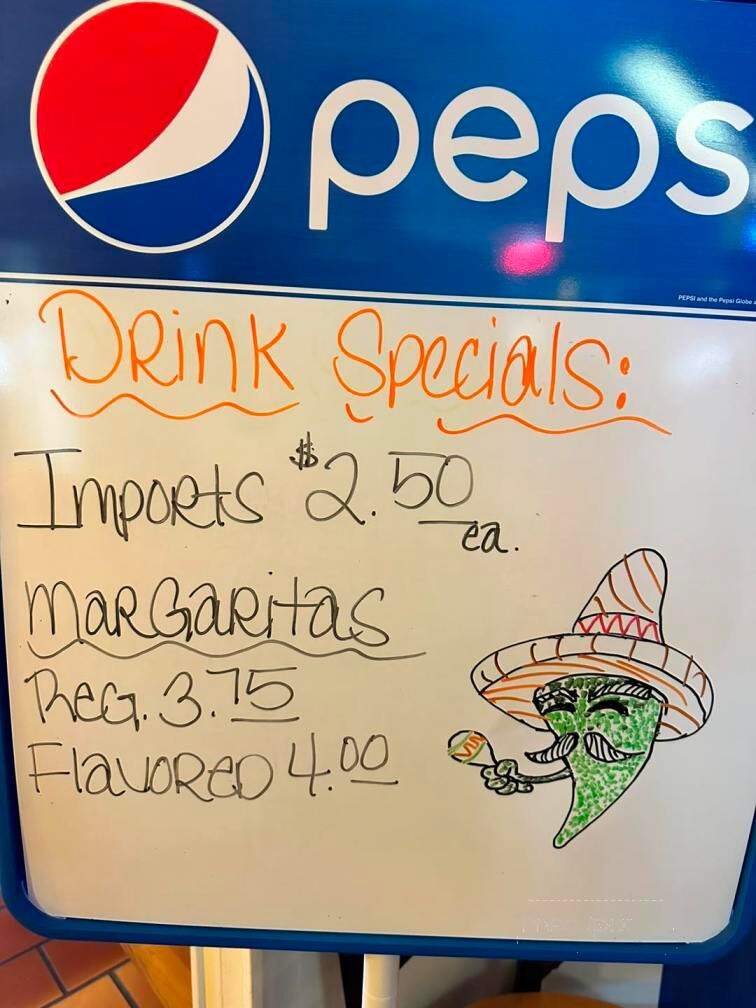 peps
PEPSI and the Pepsi Globe
DRiNK Specials:
Imports $2.50
ea.
MaRGaRitas
ReG. 3.75
FlavoReD 4.00